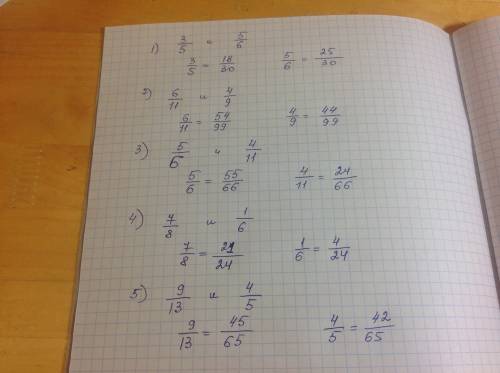 1) 3/5 и 5/6
3/5 = 18/30 5/6 = 25/30
2) 6/11 и 4/9
6/11 = 54/99 4/9 = 44/99
3) 5/6 и 4/11
5/6 = 55/66 4/11 = 24/66
4) 7/8 и 1/6
7/8 = 21/24 1/6 = 4/24
5) 9/13 и 4/5
9/13 = 45/65 4/5 = 42/65